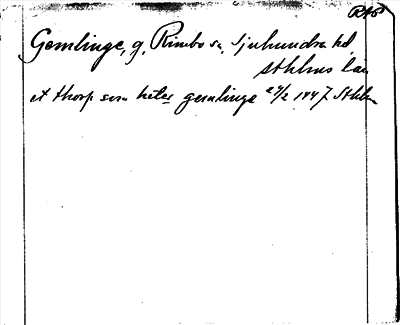 RAP
Gemlinge, g, Rimbo sn, Sjuhundra hd,
sthlms län
et thorp som heter gemlinge 24/2 1447 Sthlm